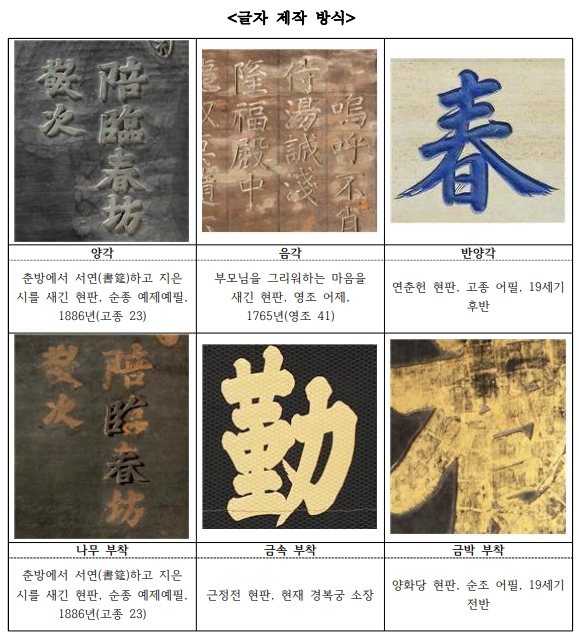 <글자 제작 방식>
陪臨春坊
獒次
嗚呼不肖
侍湯誠淺
隆福殿中
春
양각
음각
반양각
춘방에서 서연(書筵)하고 지은
시를 새긴 현판, 순종 예제예필,
1886년(고종 23)
부모님을 그리워하는 마음을
새긴 현판, 영조 어제,
1765년(영조 41)
연춘헌 현판, 고종 어필, 19세기
후반
陪臨春坊
次
勤
나무 부착
금속 부착
금박 부착
춘방에서 서연(書筵)하고 지은
시를 새긴 현판, 순종 예제예필,
1886년(고종 23)
근정전 현판, 현재 경복궁 소장
양화당 현판, 순조 어필, 19세기
전반